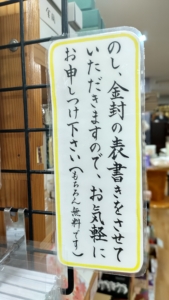 のし、金封の表書きをさせて
いただきますので、お気軽に
お申しつけ下さい(もちろん無料です。)